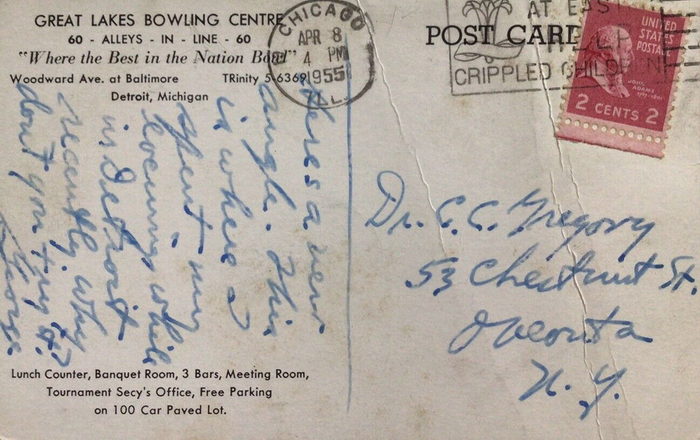 GREAT LAKES BOWLING CENTRE
60 - ALLEYS - IN - LINE - 60
"Where the Best in the Nation Bowl"
Woodward Ave. at Baltimore TRinity 5-6369
Detroit, Michigan
Here's a new
angle. This
is where I
spent my
evenings while
in Detroit
recently why
don't you try it?
George
Lunch Counter, Banquet Room, 3 Bars, Meeting Room,
Tournament Secy's Office, Free Parking
on 100 Car Paved Lot.
CHICAGO
APR 8
4 PM
1955
ILL.
POST CARD
AT EAS
CRIPPLED CHILD
UNITED
STATES
POSTAGE
JOHN
ADAMS
2 CENTS 2
Dr. C. C. Gregory
53 Chestnut St.
Oneonta
N. Y.